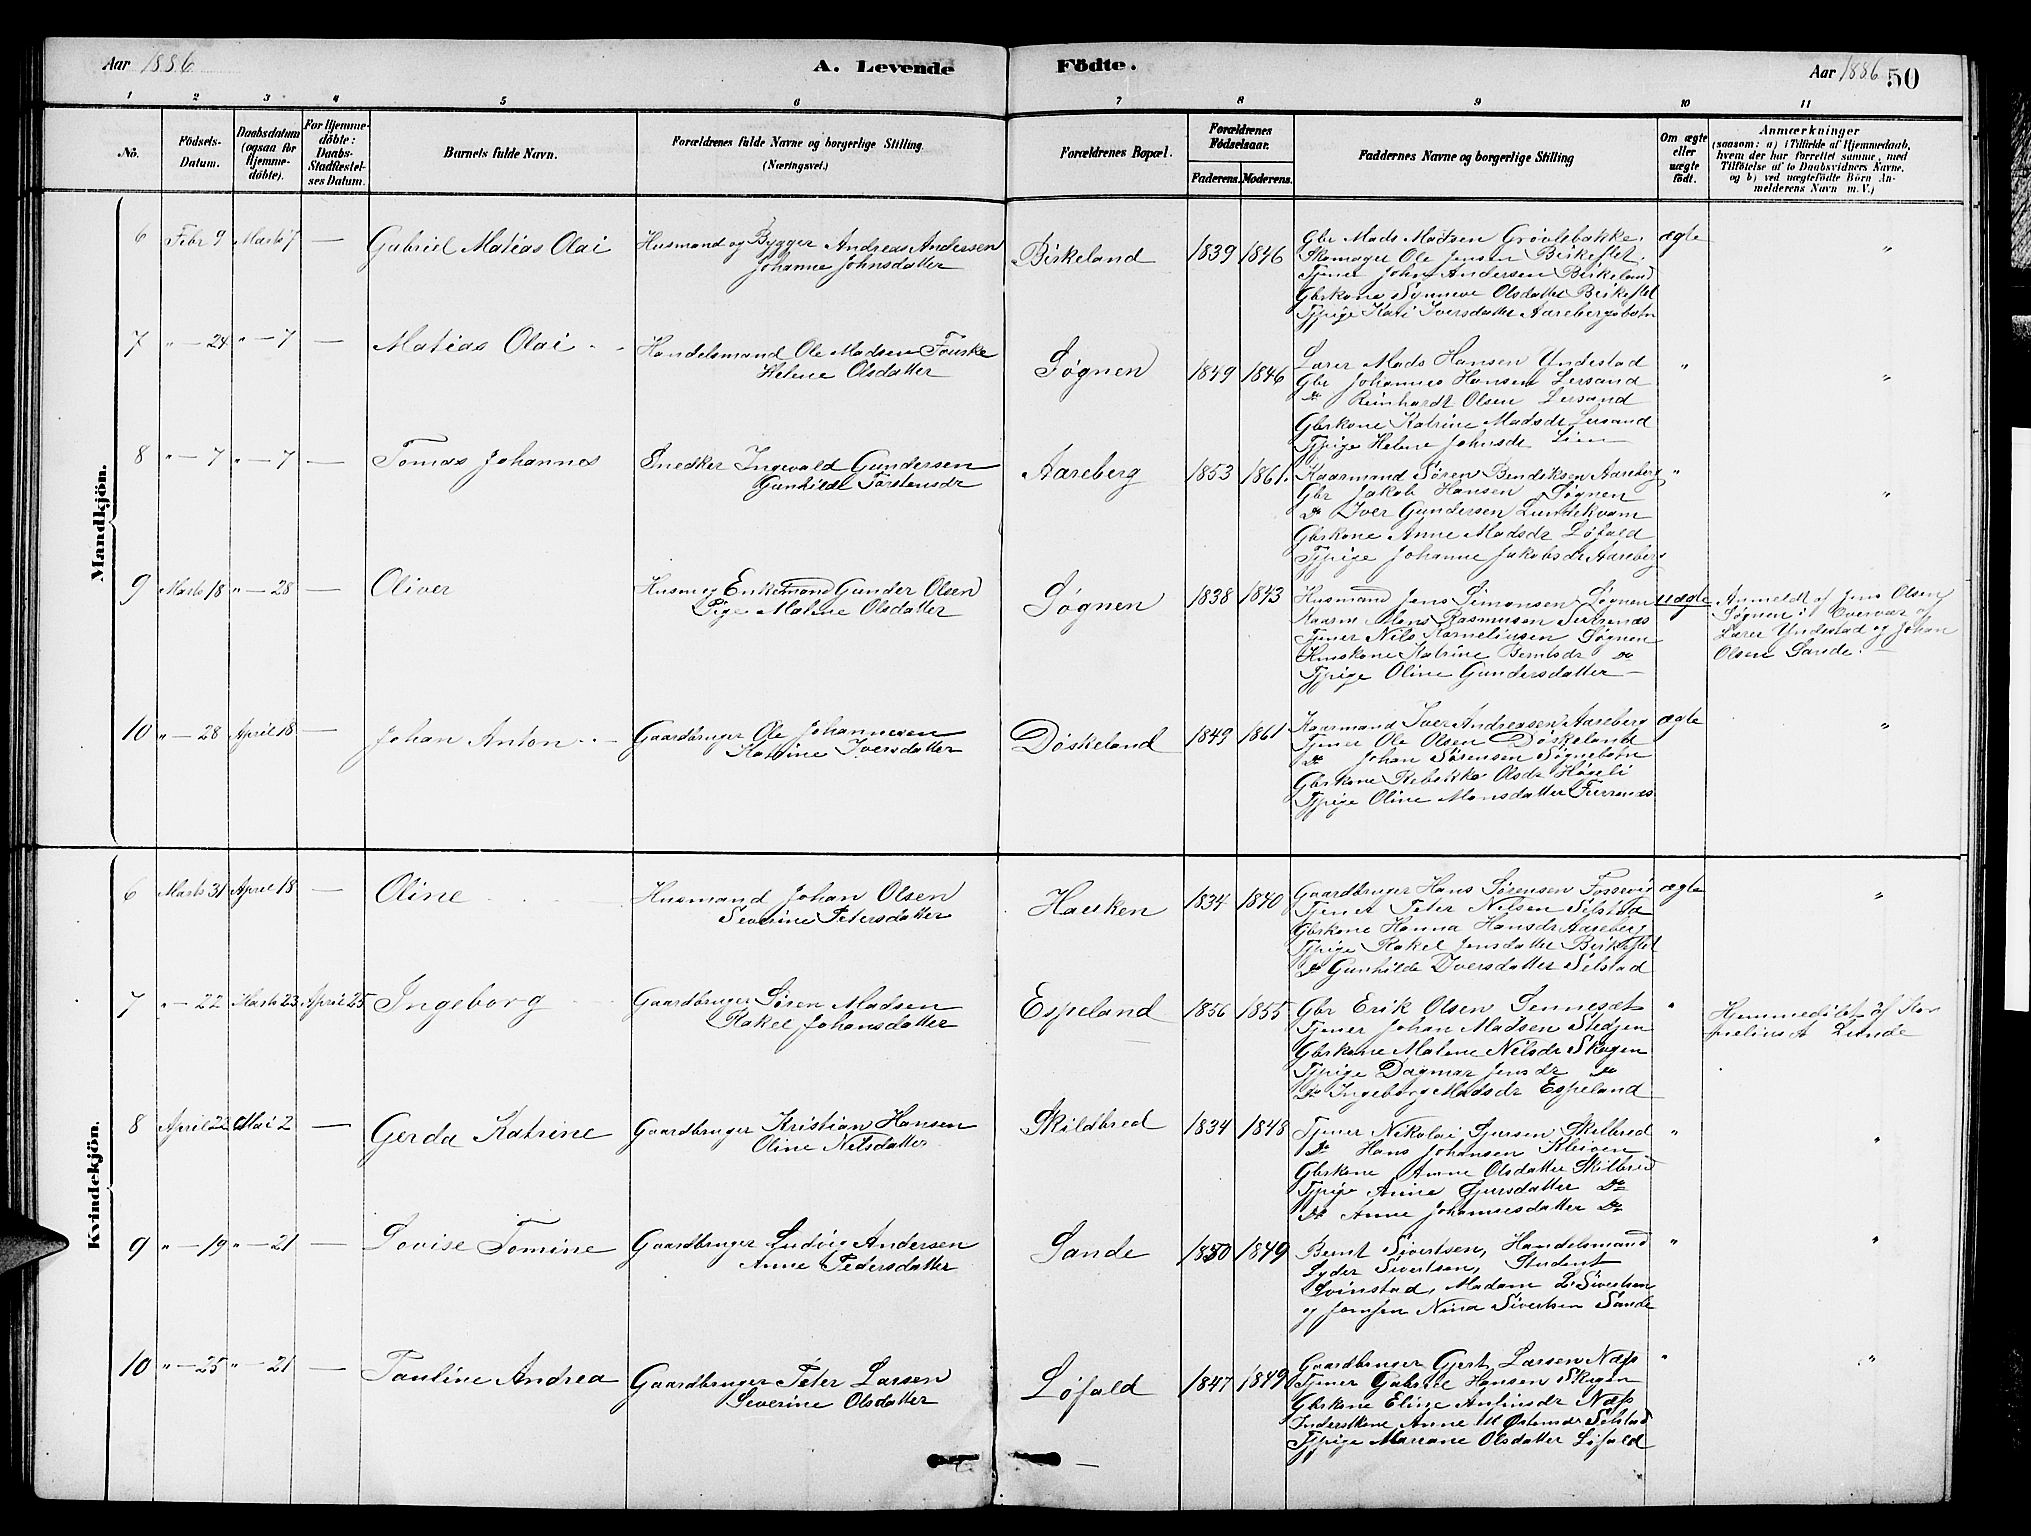 Aar 1886 A. Levende Födte. Aar 1886 50
1 2 3 4 5 6 7 8 9 10 11
No. Födsels-Datum. Daabsdatum (ogsaa for Hjemme-döbte). For Hjemme-döbte: Daabs-Stadfæstel-ses Datum. Barnets fulde Navn. Forældrenes fulde Navne og borgerlige Stilling. (Næringsvei.) Forældrenes Bopæl. Forældrenes Födselsaar. Faderens. Moderens. Faddernes Navne og borgerlige Stilling Om ægte eller uægte födt. Anmærkninger (saasom: a) i Tilfælde af Hjemmedaab, hvem der har forrettet samme, med Tilföielse af to Daabsvidners Navne, og b) ved uægtefödte Börn An-melderens Navn m. V.)
Mandkjön.
6 Febr 9 Marts 7 — Gabriel Matias Olai Husmand og Bygger Andreas Andersen Birkeland 1839 1846 Gbr Mads Madsen Grøvlebakke. ægte "
Johanne Johnsdatter Skomager Ole Jensen Birkeflet.
Tjener John Andersen Birkeland
Gbrkone Synneve Olsdatter Birkeflet
Tjpige Kari Iversdatter Aarebergsbotn
7 "—24 "—7 — Matias Olai Handelsmand Ole Madsen Fouske Søgnen 1849 1846 Lærer Mads Hansen Yndestad " "
Helene Olsdatter Gbr Johannes Hansen Lersand
Do Reinhardt Olsen Lersand
Gbrkone Katrine Madsdr Lersand
Tjpige Helene Johnsdr Lien
8 "—7 "—7 — Tomas Johannes Snedker Ingevald Gundersen Aareberg 1853 1861. Kaarmand Søren Bendiksen Aareberg " "
Gunhilde Torstensdr Gbr Jakob Hansen Søgnen
Do Iver Gundersen Lundekvam
Gbrkone Anne Madsdr Løfald
Tjpige Johanne Jakobsdr Aareberg
9 Marts 18 "—28 — Oliver Husm og Enkemand Gunder Olsen Søgnen 1838 1843 Husmand Jens Simonsen Søgnen uægte Anmeldt af Jens Olsen
Pige Malene Olsdatter Kaarm Mons Rasmusen Furrenæs Søgnen i Overvær af
Tjener Nils Korneliusen Søgnen Lærer Yndestad og Johan
Huskone Katrine Berntsdr Do Olsen Sande.
Tjpige Oline Gundersdatter —
10 "—28 April 18 — Johan Anton Gaardbruger Ole Johannesen Døskeland 1849 1861 Kaarmand Iver Andreasen Aareberg ægte "
Katrine Iversdatter Tjener Ole Olsen Døskeland
Do Johan Sørensen Søgnebotn
Gbrkone Rebekka Olsdr Høgeli
Tjpige Oline Monsdatter Furrenæs
Kvindekjön.
6 Marts 31 April 18 — Oline Husmand Johan Olsen Hauken 1834 1840 Gaardbruger Hans Sørensen Fossevig ægte "
Severine Petersdatter Tjener Peter Nilsen Selstad
Gbrkone Hanna Hansdr Aareberg
Tjpige Rakel Jensdatter Birkeflet
Do Gunhilde Iversdatter Selstad
7 "—22 Marts 23 April 25 Ingeborg Gaardbruger Søren Madsen Espeland 1856 1855 Gbr Erik Olsen Sennesæt " Hjemmedøbt af Kor-
Rakel Johansdatter Tjener Johan Madsen Stedjen nelius A Lunde
Gbrkone Malene Nilsdr Skogen
Tjpige Dagmar Jensdr Do
Do Ingeborg Madsdr Espeland
8 April 22 Mai 2 — Gerda Katrine Gaardbruger Kristian Hansen Skildbred 1834 1848 Tjener Nikolai Gjersen Skilbred " "
Oline Nilsdatter Do Hans Johansen Kleiven
Gbrkone Anne Olsdatter Skilbred
Tjpige Anne Gjersdatter Do
Do Anne Johannesdatter Do
9 "—19 "—21 — Lovise Tomine Gaardbruger Ludvig Andersen Sande 1850 1849 Bernt Sivertsen, Handelsmand " "
Anne Pedersdatter Lyder Sivertsen, Student
Svinstad, Madam L. Sivertsen
og Jomfru Nina Sivertsen Sande
10 "—25 "—21 — Pauline Andrea Gaardbruger Peter Larsen Løfald 1847 1849 Gaardbruger Gjert Larsen Næss " "
Severine Olsdatter Tjener Gabriel Hansen Skogen
Gbrkone Eline Antinsdr Næss
Inderstkone Anne M Østensdr Selstad
Tjpige Mariane Olsdatter Løfald